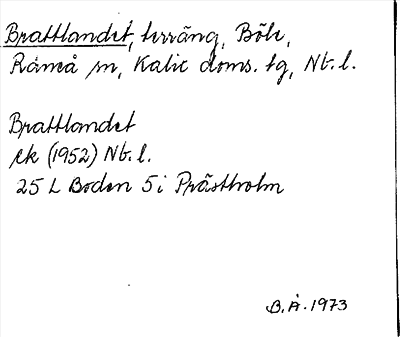 Brattlandet, terräng, Böle,
Råneå sn, Kalix doms. tg, Nb. l.
Brattlandet
ek (1952) Nb. l.
25 L Boden 5i Prästholm
B. Å. 1973